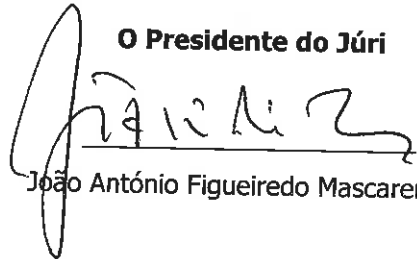 O Presidente do Júri
João António Figueiredo